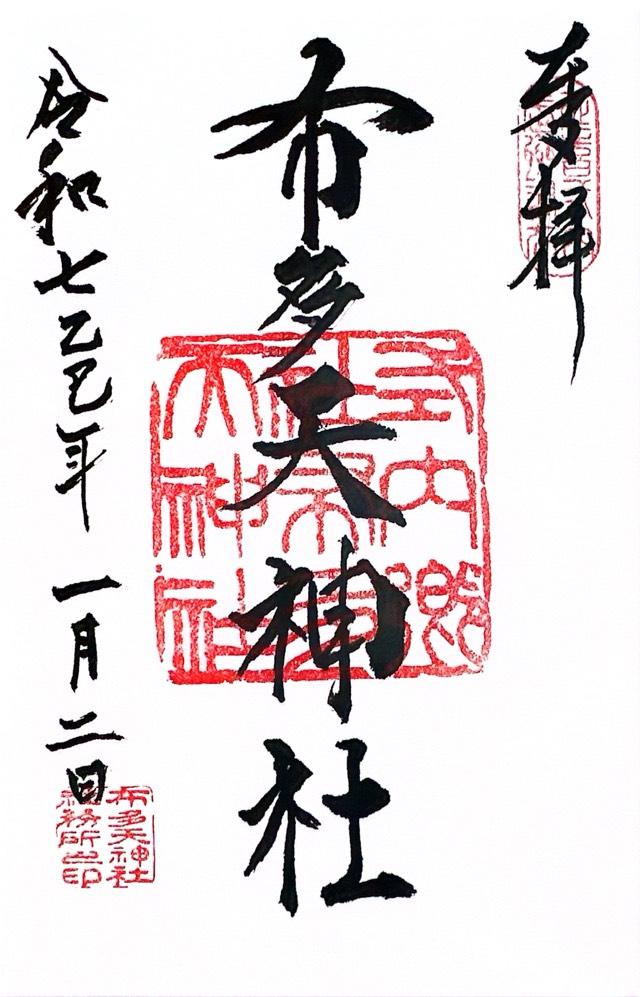 奉拝
布多天神社
式内郷
社布多
天神社
令和七乙巳年一月二日
布多天神社
社務所之印